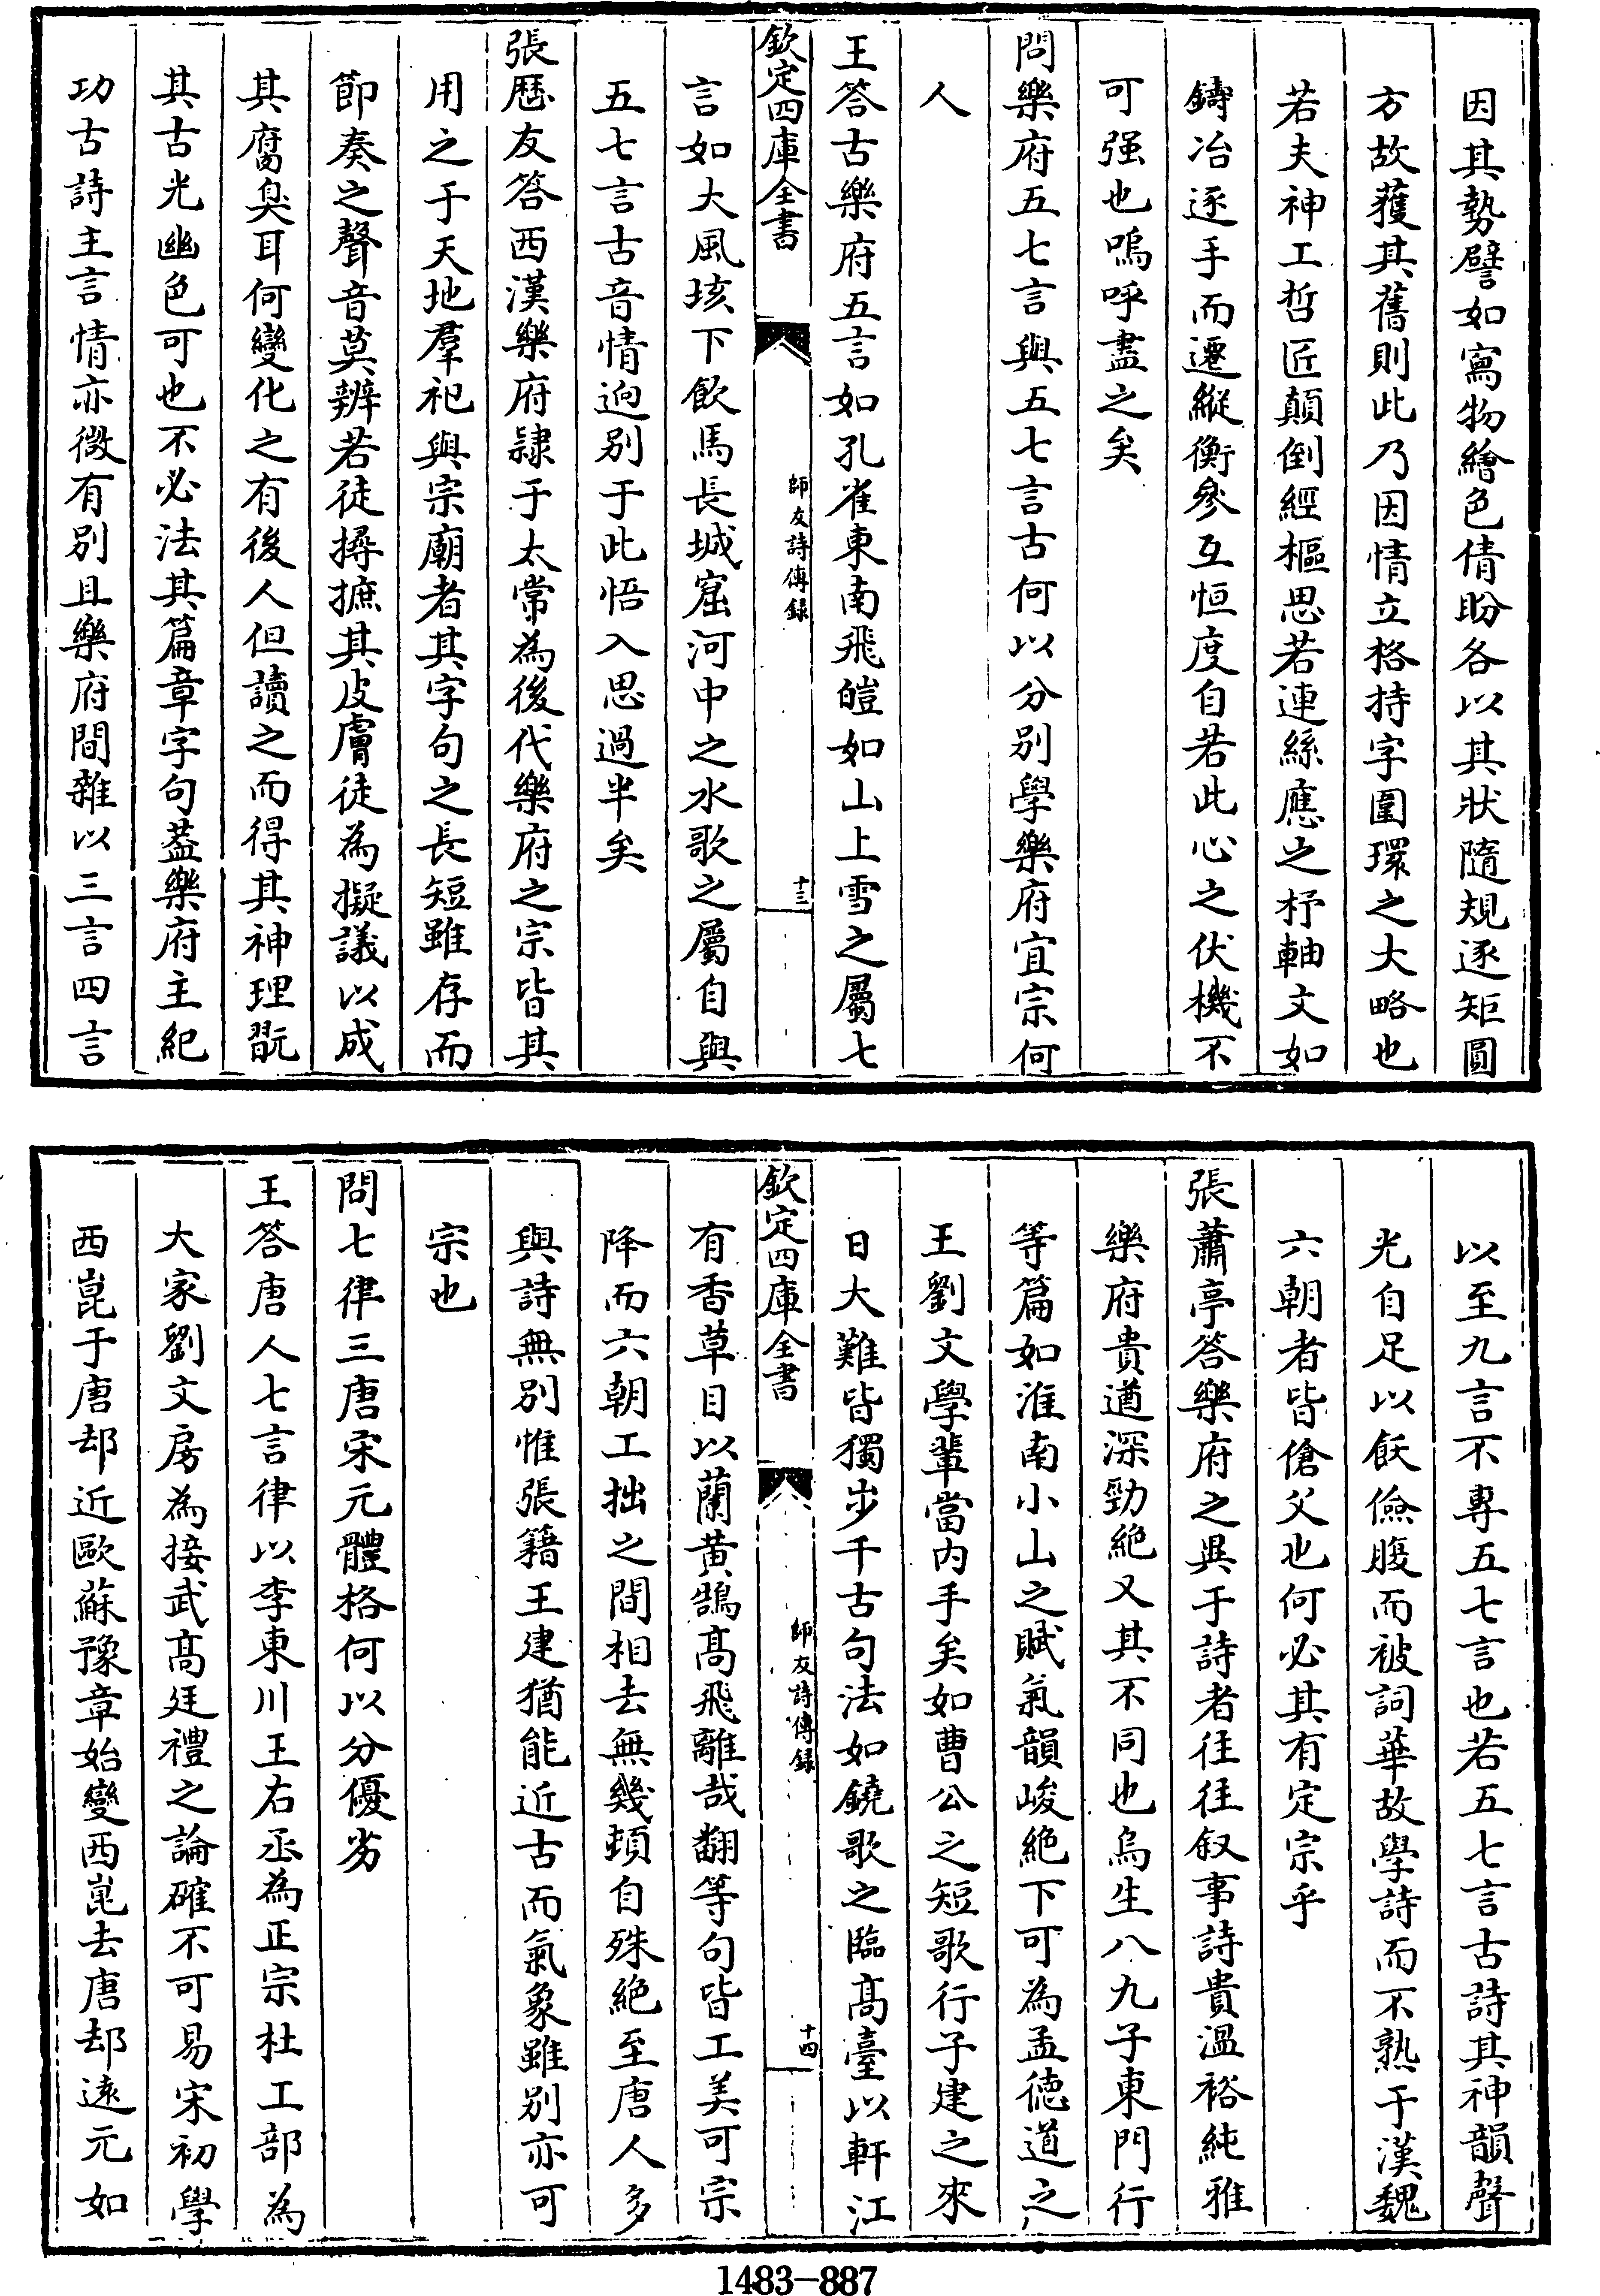 因其勢譬如寫物繪色倩盼各以其狀隨規逐矩圓
方故獲其舊則此乃因情立格持字圍環之大略也
若夫神工哲匠顛倒經樞思若連絲應之杼軸文如
鑄冶逐手而遷縱衡參互恒度自若此心之伏機不
可强也嗚呼盡之矣
問樂府五七言與五七言古何以分别學樂府宜宗何
人
王答古樂府五言如孔雀東南飛皚如山上雪之屬七
欽定四庫全書
師友詩傳録
十三
言如大風垓下飲馬長城窟河中之水歌之屬自與
五七言古音情迥别于此悟入思過半矣
張歴友答西漢樂府隷于太常為後代樂府之宗皆其
用之于天地羣祀與宗廟者其字句之長短雖存而
節奏之聲音莫辨若徒撏摭其皮膚徒為擬議以成
其腐臭耳何變化之有後人但讀之而得其神理翫
其古光幽色可也不必法其篇章字句葢樂府主紀
功古詩主言情亦微有别且樂府間雜以三言四言
以至九言不專五七言也若五七言古詩其神韻聲
光自足以飫儉腹而被詞華故學詩而不熟于漢魏
六朝者皆傖父也何必其有定宗乎
張蕭亭答樂府之異于詩者往往叙事詩貴温裕純雅
樂府貴遒深勁絶又其不同也烏生八九子東門行
等篇如淮南小山之賦氣韻峻絶下可為孟徳道之
王劉文學軰當内手矣如曹公之短歌行子建之來
日大難皆獨步千古句法如鐃歌之臨髙臺以軒江
欽定四庫全書
師友詩傳録
十四
有香草目以蘭黄鵠髙飛離哉翻等句皆工美可宗
降而六朝工拙之間相去無幾頓自殊絶至唐人多
與詩無别惟張籍王建猶能近古而氣象雖别亦可
宗也
問七律三唐宋元體格何以分優劣
王答唐人七言律以李東川王右丞為正宗杜工部為
大家劉文房為接武髙廷禮之論確不可易宋初學
西崑于唐却近歐蘇豫章始變西崑去唐却遠元如
1483-887